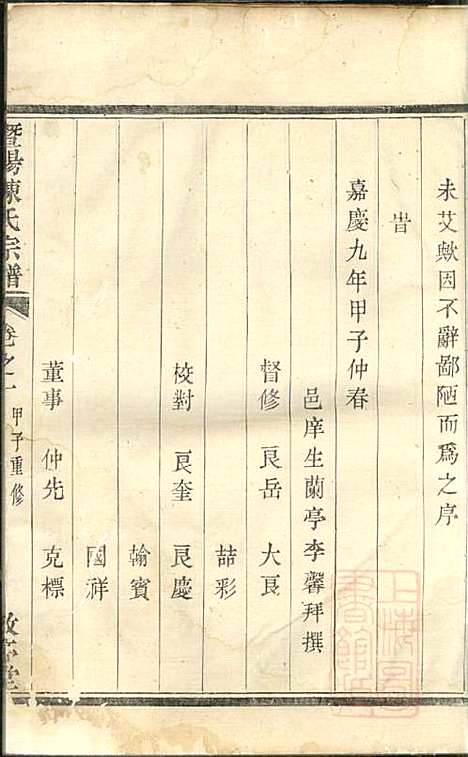 未艾歟因不辭鄙陋而爲之序
旹
嘉慶九年甲子仲春
邑庠生蘭亭李馨拜撰
督修 良岳 大良
喆彩
校對 良奎 良慶
翰賓
國祥
董事 仲先 克標
暨陽陳氏宗譜
卷之一 甲子重修
上海圖書館藏